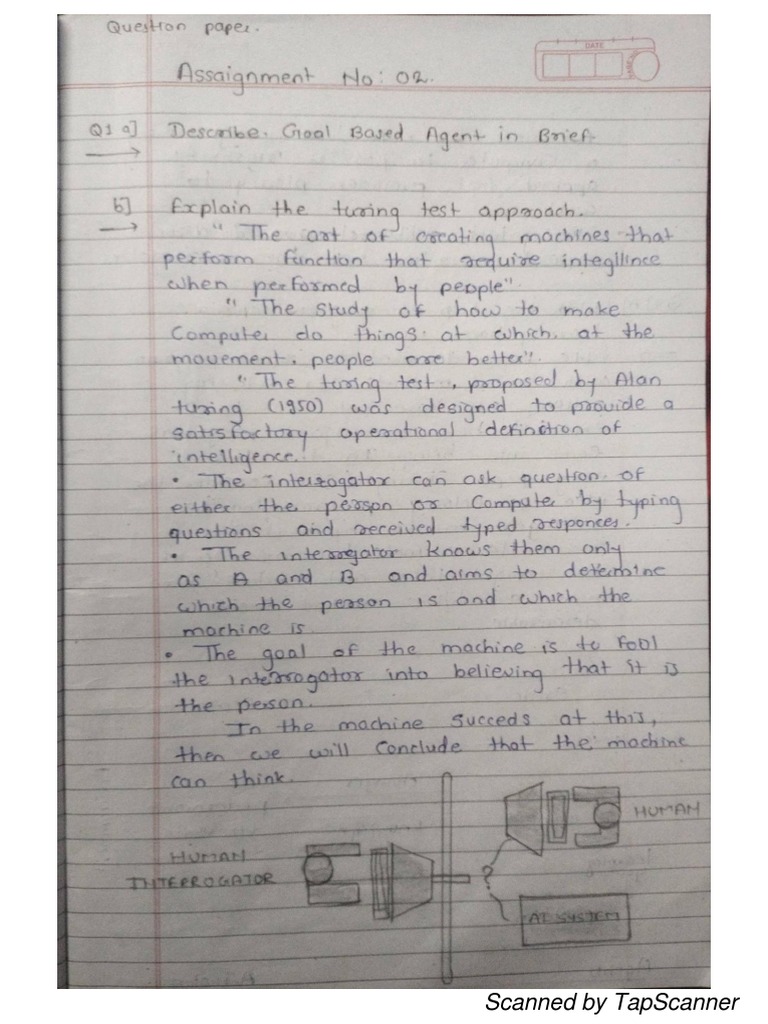 Question paper.
DATE
Assaignment No: 02.
Q1 a] Describe. Goal Based Agent in Brief.
b] Explain the turing test approach.
" The art of creating machines that
perform function that require integllince
when performed by people".
" The study of how to make
Compute do things at which. at the
movement. people are better".
" The turing test, proposed by Alan
turing (1950) was designed to provide a
satisfactory operational definition of
intelligence.
• The interrogator can ask question of
either the person or Compute by typing
questions and received typed responces.
• The interrogator knows them only
as A and B and aims to determine
which the person is and which the
machine is
• The goal of the machine is to fool
the interrogator into believing that it is
the person.
In the machine succeds at this,
then we will conclude that the machine
can think.
HUMAN
HUMAN
INTERROGATOR
?
AI SYSTEM
Scanned by TapScanner